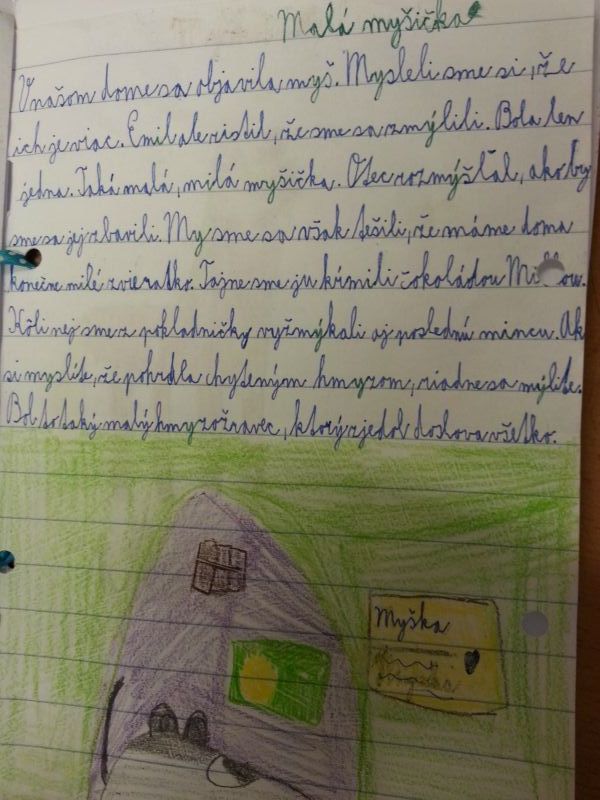 Malá myšička
V našom dome sa objavila myš. Mysleli sme si, že
ich je viac. Emil ale zistil, že sme sa zmýlili. Bola len
jedna. Taká malá, milá myšička. Otec rozmýšľal, ako by
sme sa jej zbavili. My sme sa však tešili, že máme doma
konečne milé zvieratko. Tajne sme ju kŕmili čokoládou Milkou.
Kôli nej sme z pokladničky vyžmýkali aj poslednú mincu. Ak
si myslíte, že pohrdla chyteným hmyzom, riadne sa mýlite.
Bol to taký malý hmyzožravec, ktorý zjedol doslova všetko.
Myška